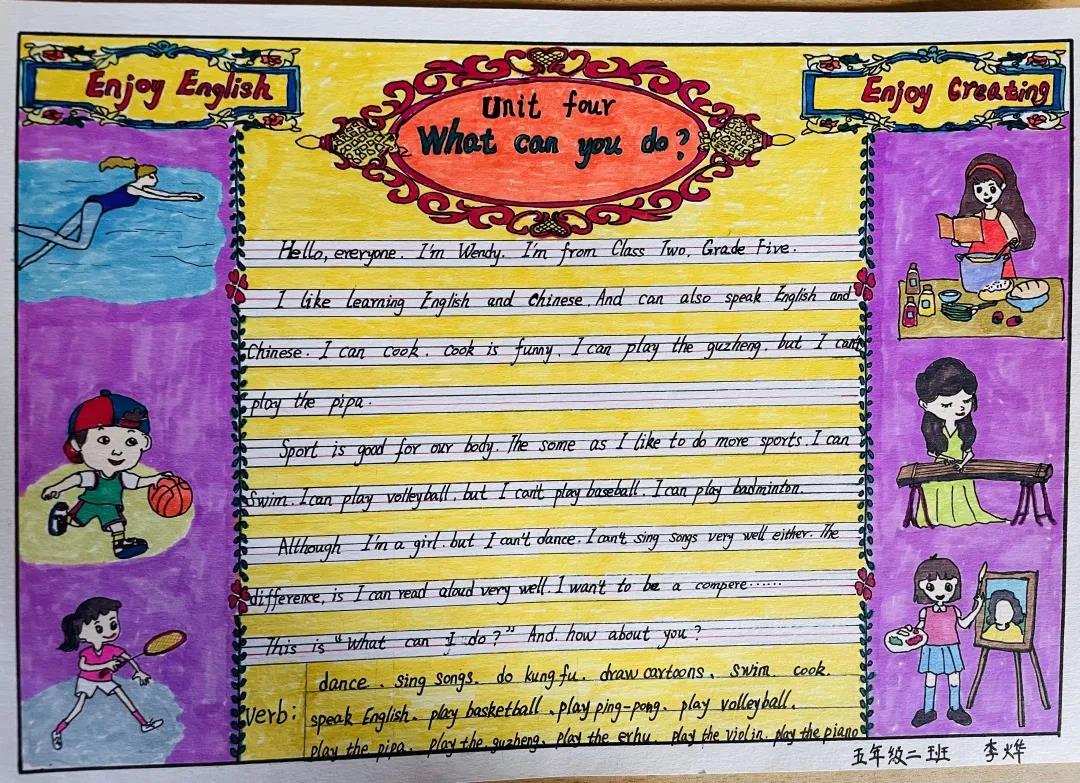 Enjoy English
Unit four
What can you do?
Enjoy Creating
Hello, everyone. I'm Wendy. I'm from Class Two, Grade Five.
I like learning English and Chinese. And can also speak English and
Chinese. I can cook. cook is funny. I can play the guzheng. but I can't
play the pipa.
Sport is good for our body. The some as I like to do more sports. I can
swim. I can play volleyball, but I can't play baseball. I can play badminton.
Although I'm a girl. but I can't dance. I can't sing songs very well either. The
difference, is I can read aloud very well. I wan't to be a compere......
This is "What can I do?" And. how about you?
dance、sing songs、do kung fu、draw cartoons、swim、cook、
verb:
speak English、play basketball、play ping-pong、play volleyball、
play the pipa、play the guzheng、play the erhu、play the violin、play the piano
五年级二班 李烨